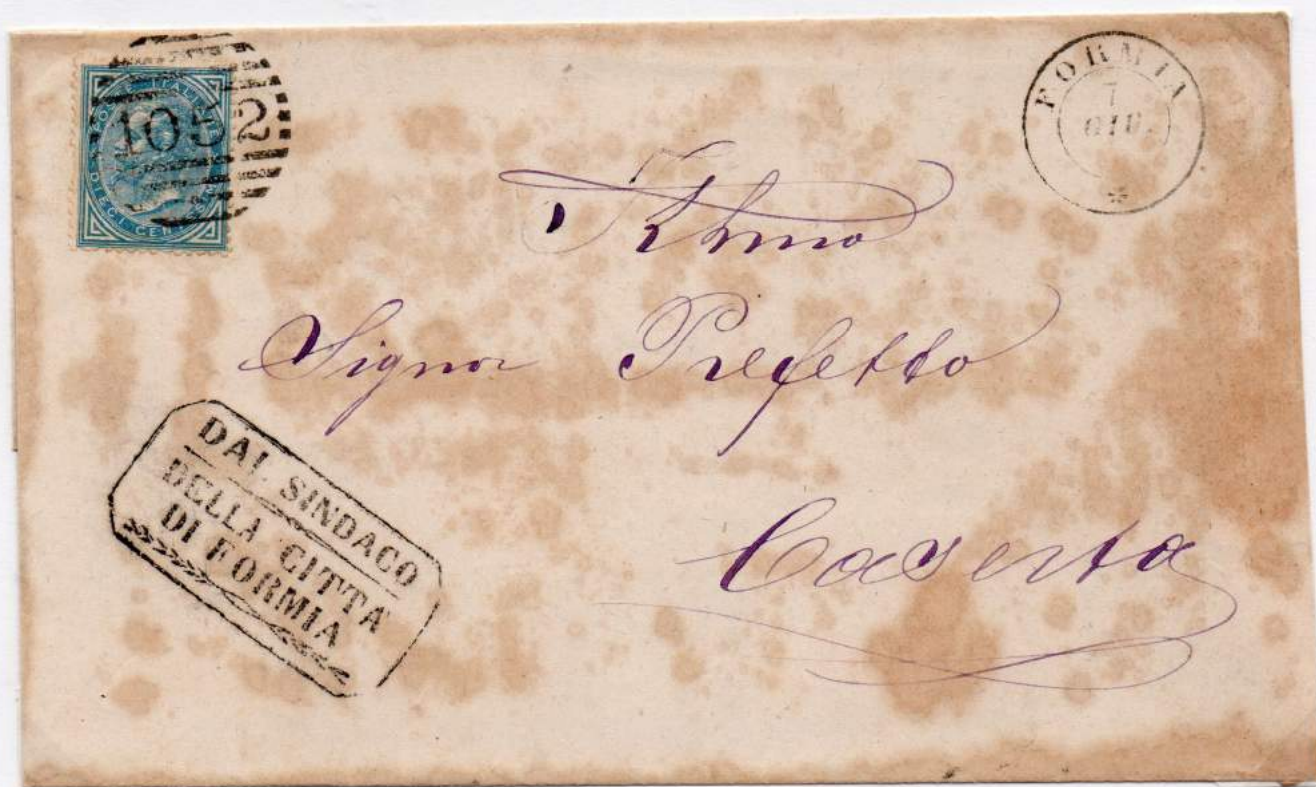 POSTE ITALIANE
1052
DIECI CENT
FORMIA
7
GIU.
*
Illmo
Signor Prefetto
Caserta
DAL SINDACO
DELLA CITTA'
DI FORMIA